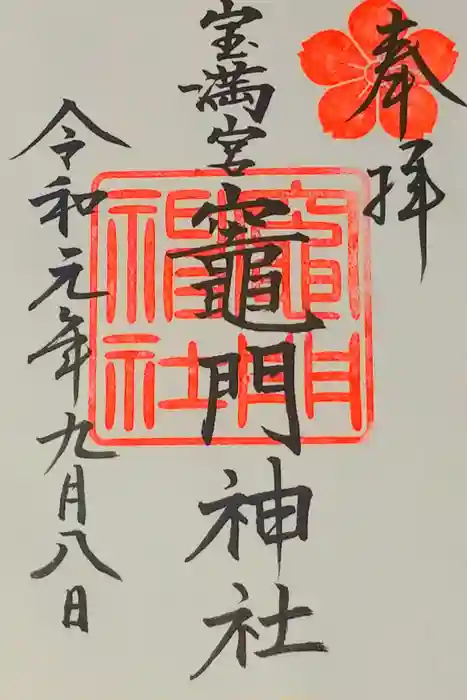 奉拝
宝満宮
竈門神社
竈門神社
令和元年九月八日